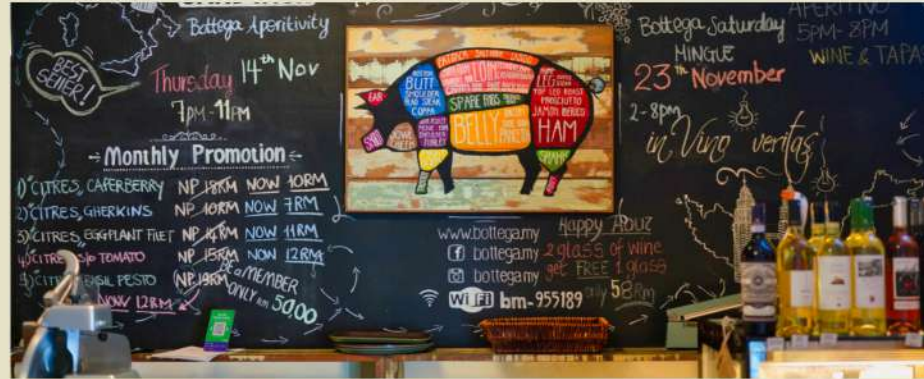 Bottega Aperitivity
BEST
SELLER!
Thursday 14th Nov
7PM-11PM
Monthly Promotion
1) CITRES, CAPERBERRY NP 18RM NOW 10RM
2) CITRES, GHERKINS NP 10RM NOW 7RM
3) CITRES, EGGPLANT FILET NP 14RM NOW 11RM
4) CITRES TOMATO NP 15RM NOW 12RM
5) CITRES BASIL PESTO NP 19RM
NOW 12RM
BE a MEMBER
ONLY RM 50,00
EAR
SNOUT
JOWL
BUTT
SHOULDER
COPPA
LOIN
SPARE RIBS
BELLY
PANCETTA
LEG
TOP LEG ROAST
PROSCIUTTO
JAMON IBERICO
HAM
SHANK
www.bottega.my
bottegamy
bottegamy
Wi Fi bm-955189
Happy Hour
2 glass of wine
get FREE 1 glass
58RM
Bottega Saturday
MINGLE
23th November
2-8pm
in Vino veritas
APERITIVO
5PM-8PM
WINE & TAPA